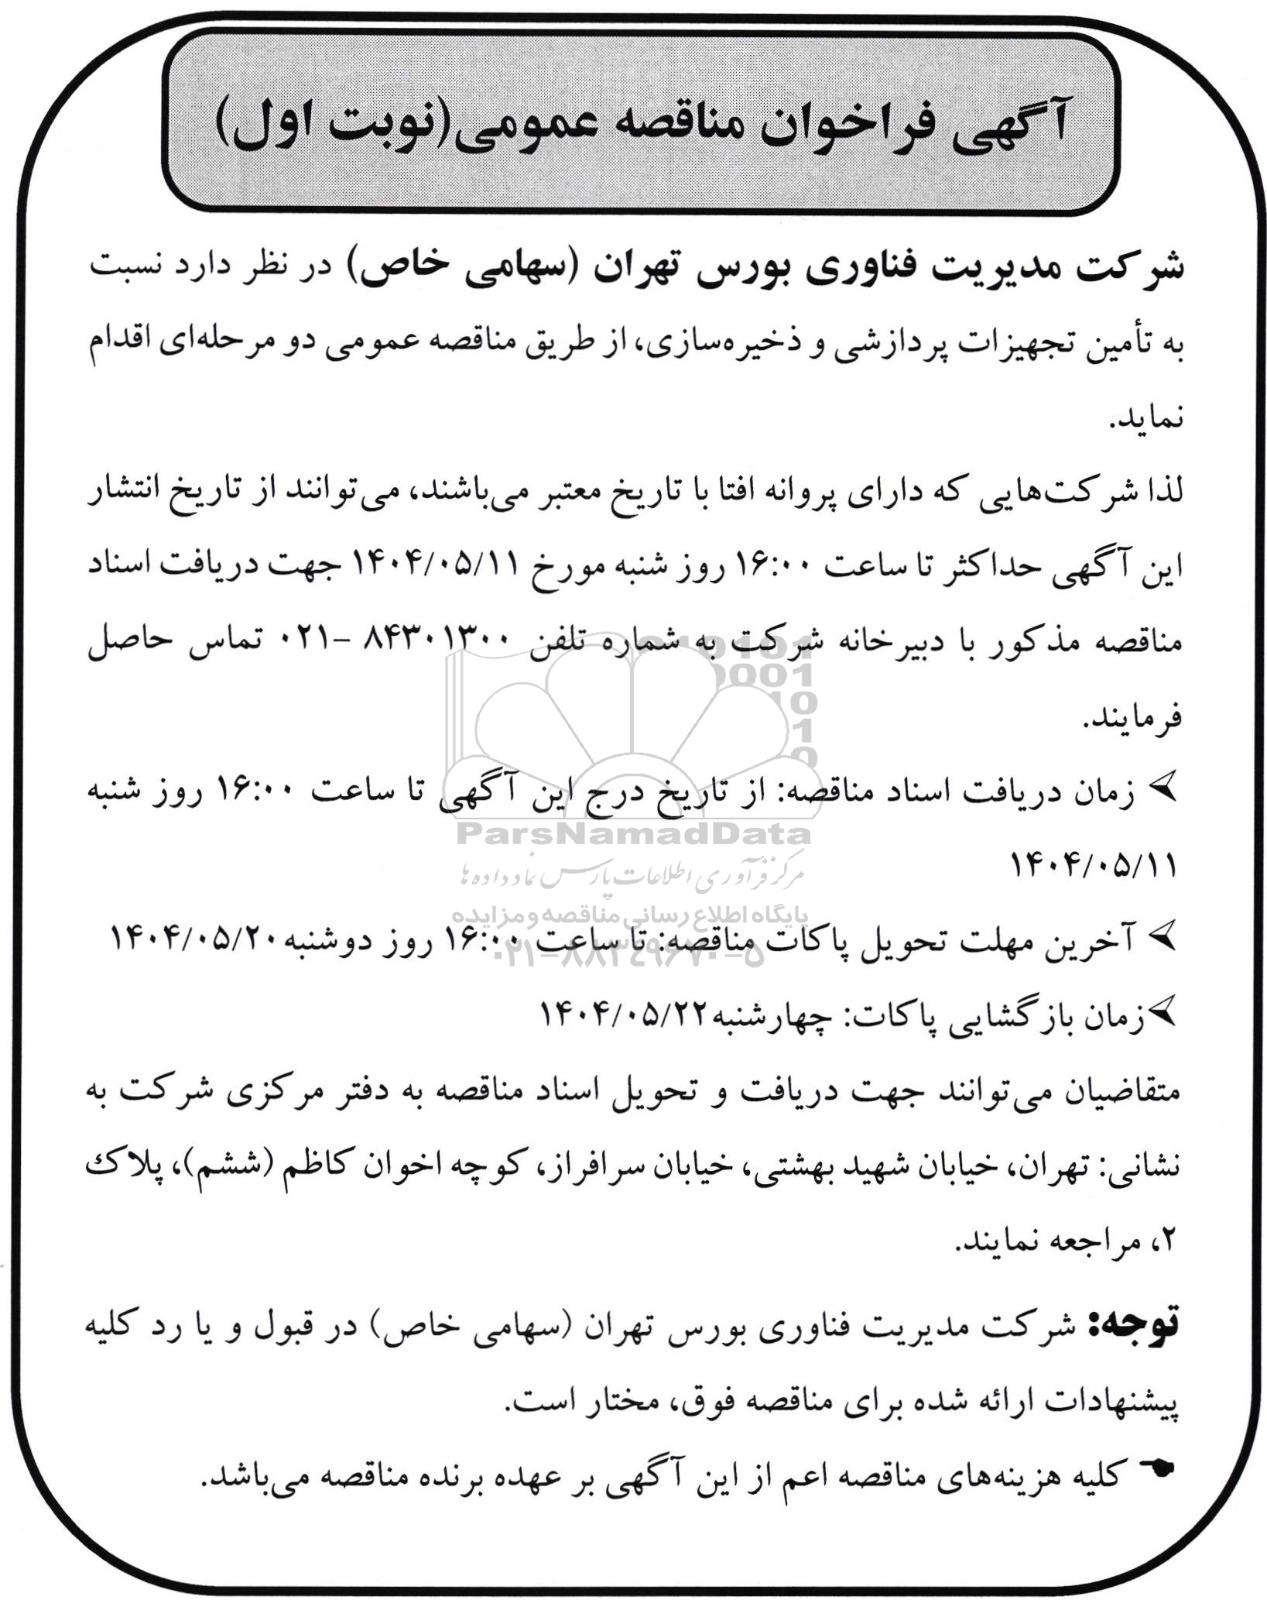 آگهی فراخوان مناقصه عمومی(نوبت اول)
شرکت مدیریت فناوری بورس تهران (سهامی خاص) در نظر دارد نسبت
به تأمین تجهیزات پردازشی و ذخیره‌سازی، از طریق مناقصه عمومی دو مرحله‌ای اقدام
نماید.
لذا شرکت‌هایی که دارای پروانه افتا با تاریخ معتبر می‌باشند، می‌توانند از تاریخ انتشار
این آگهی حداکثر تا ساعت ۱۶:۰۰ روز شنبه مورخ ۱۴۰۴/۰۵/۱۱ جهت دریافت اسناد
مناقصه مذکور با دبیرخانه شرکت به شماره تلفن ۸۴۳۰۱۳۰۰ -۰۲۱ تماس حاصل
فرمایند.
➢ زمان دریافت اسناد مناقصه: از تاریخ درج این آگهی تا ساعت ۱۶:۰۰ روز شنبه
۱۴۰۴/۰۵/۱۱
ParsNamadData
مرکز فرآوری اطلاعات پارس نماد داده ها
پایگاه اطلاع رسانی مناقصه و مزایده
➢ آخرین مهلت تحویل پاکات مناقصه: تا ساعت ۱۶:۰۰ روز دوشنبه ۱۴۰۴/۰۵/۲۰
۰۲۱-۸۸۳۴۹۶۷۰-۵
➢زمان بازگشایی پاکات: چهارشنبه۱۴۰۴/۰۵/۲۲
متقاضیان می‌توانند جهت دریافت و تحویل اسناد مناقصه به دفتر مرکزی شرکت به
نشانی: تهران، خیابان شهید بهشتی، خیابان سرافراز، کوچه اخوان کاظم (ششم)، پلاک
۲، مراجعه نمایند.
توجه: شرکت مدیریت فناوری بورس تهران (سهامی خاص) در قبول و یا رد کلیه
پیشنهادات ارائه شده برای مناقصه فوق، مختار است.
☚ کلیه هزینه‌های مناقصه اعم از این آگهی بر عهده برنده مناقصه می‌باشد.